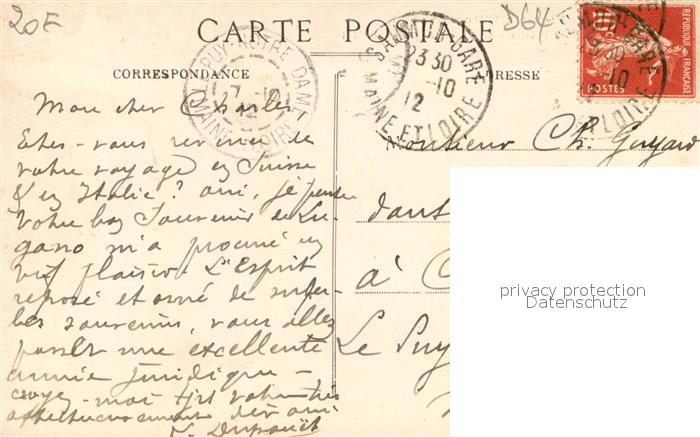 20F
D64
CARTE POSTALE
CORRESPONDANCE
ADRESSE
LE PUY-NOTRE DAME
MAINE-ET-LOIRE
SAUMUR-GARE
23 30
10
12
MAINE ET LOIRE
REPUBLIQUE FRANÇAISE
10
POSTES
Mon cher Charles
Etes-vous revenu de
votre voyage en Suisse
& en Italie? oui, je pense
Votre bon Souvenir de Lu-
gano m'a procuré un
vif plaisir. L'Esprit
reposé et orné de super-
bes souvenirs, vous allez
passer une excellente
année juridique -
croyez-moi tjrs votre très
affectueusement
Monsieur Ch. Guyard
à
Le Puy
privacy protection
Datenschutz